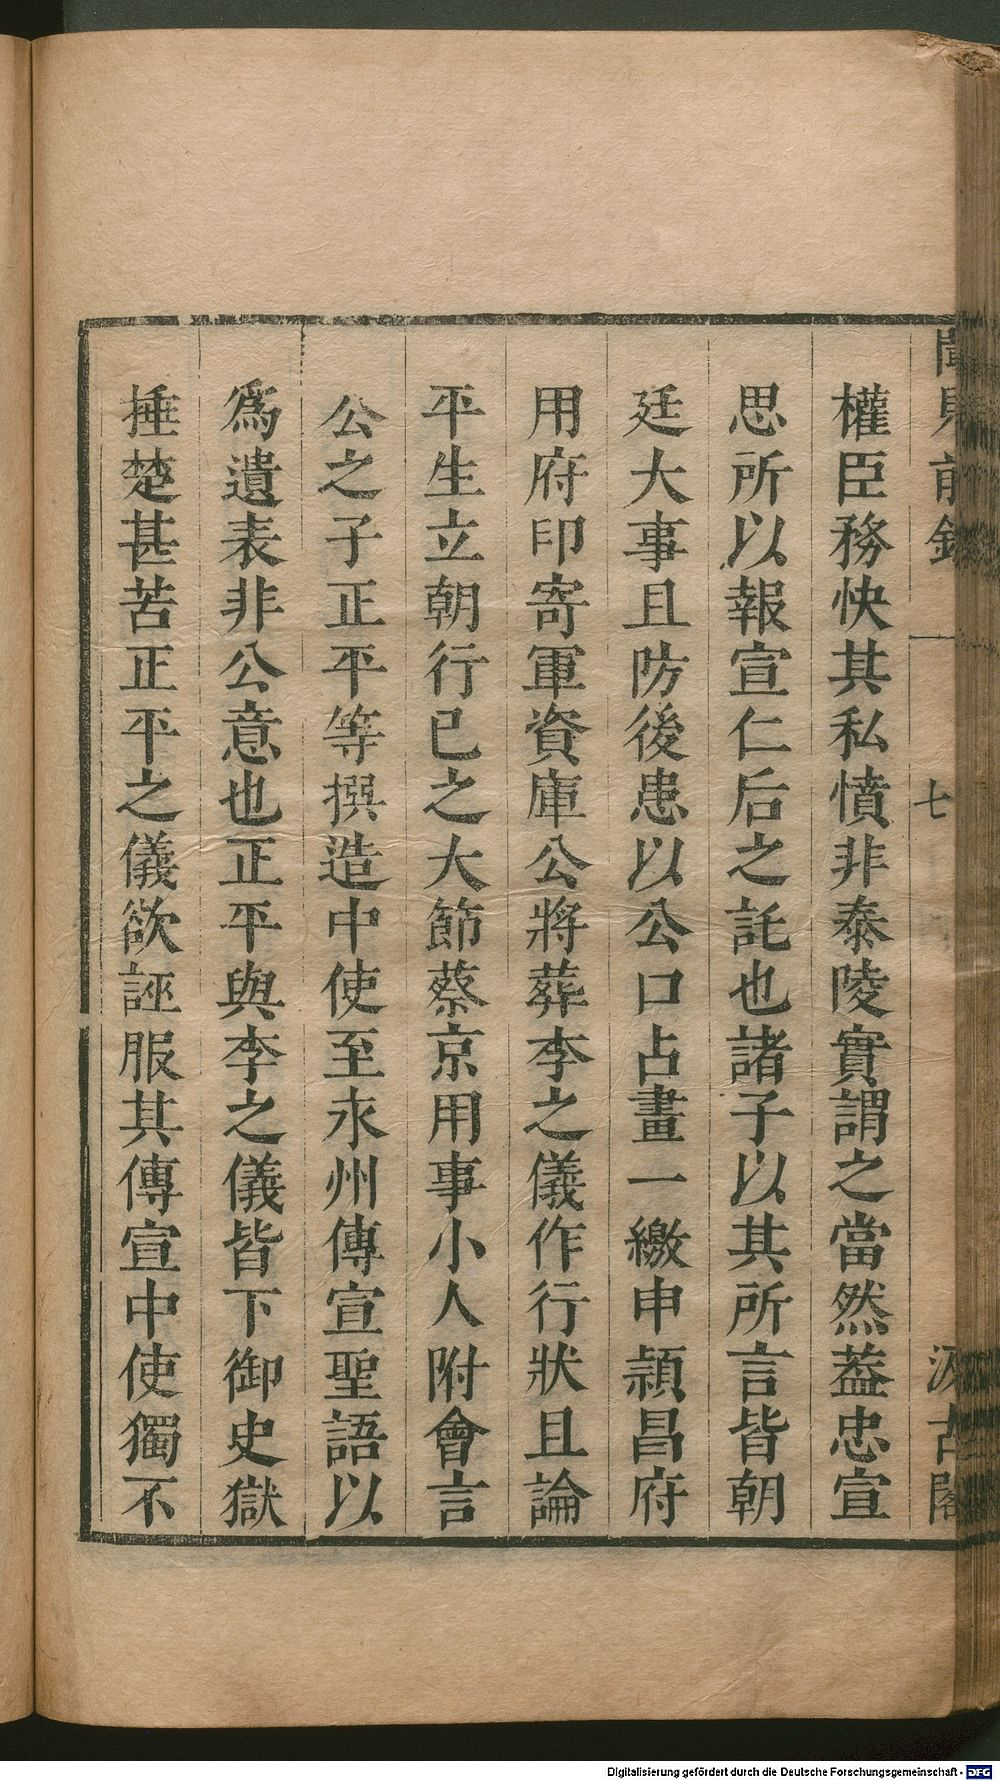 聞見前録
七
汲古閣
權臣務快其私憤非泰陵實謂之當然葢忠宣
思所以報宣仁后之託也諸子以其所言皆朝
廷大事且防後患以公口占畫一繳申頴昌府
用府印寄軍資庫公將葬李之儀作行狀且論
平生立朝行已之大節蔡京用事小人附會言
公之子正平等撰造中使至永州傳宣聖語以
爲遺表非公意也正平與李之儀皆下御史獄
捶楚甚苦正平之儀欲誣服其傳宣中使獨不
Digitalisierung gefördert durch die Deutsche Forschungsgemeinschaft - DFG